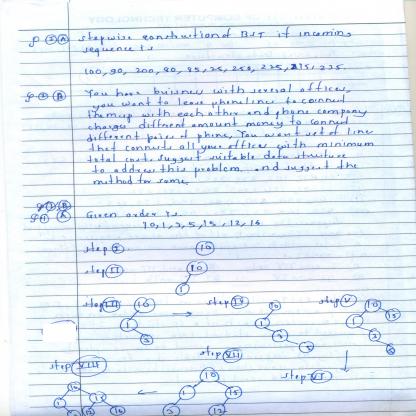 Q ② Ⓐ stepwise construction of BST if incoming
sequence is
100, 90, 200, 80, 85, 25, 250, 225, 215, 235.
Q ② Ⓑ You have buisness with several offices,
you want to lease phone lines to connect
them up with each other and phone company
charges different amount money to connect
different pairs of phone, You want set of line
that connects all your offices with minimum
total cost. Suggest suitable data structure
to address this problem and suggest the
method for same.
Q ① Ⓐ Given order is
10, 1, 3, 5, 15, 12, 16
step Ⅰ 10
step Ⅱ 10
1
step Ⅲ 10 → step Ⅳ 10 step Ⅴ 10
1 1 1 15
3 3 3
5 5
step Ⅷ step Ⅶ step Ⅵ
10 ← 10
1 15 1 15
3 12 16 3 12